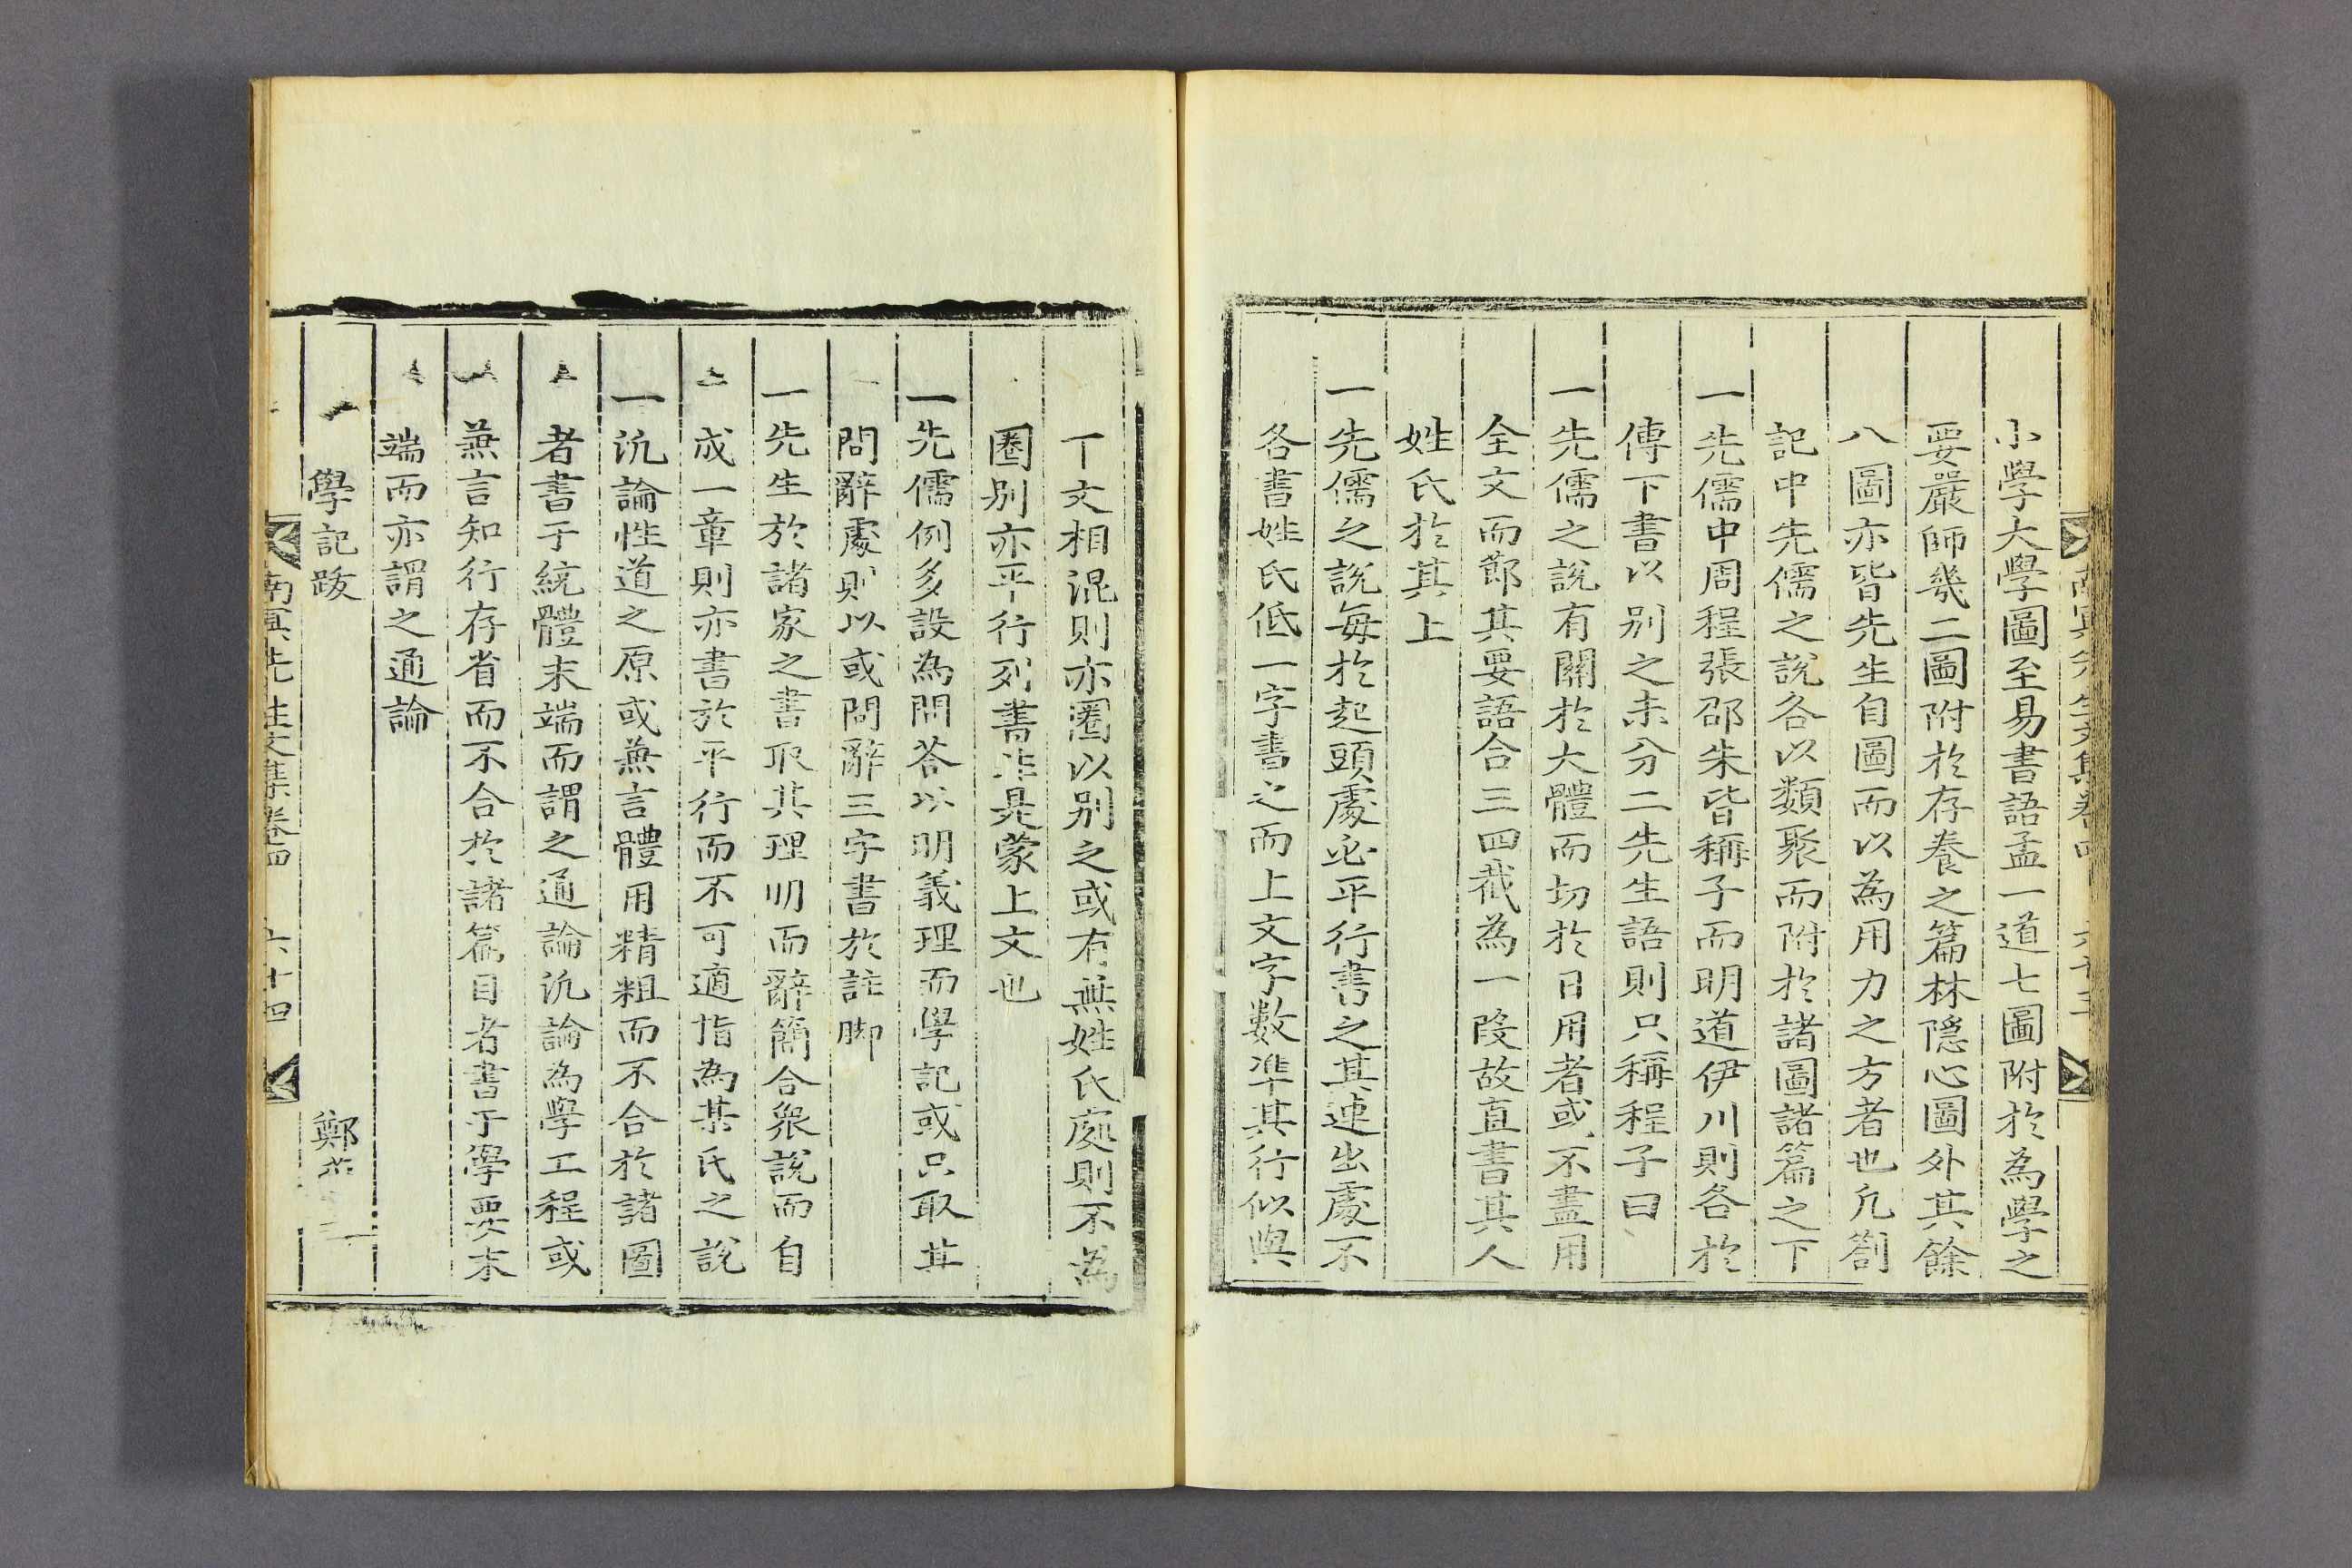 小學大學圖至易書語孟一道七圖附於為學之
要嚴師幾二圖附於存養之篇林隱心圖外其餘
八圖亦皆先生自圖而以為用力之方者也凡劄
記中先儒之說各以類聚而附於諸圖諸篇之下
一先儒中周程張邵朱皆稱子而明道伊川則各於
傳下書以别之未分二先生語則只稱程子曰
一先儒之說有關於大體而切於日用者或不盡用
全文而節其要語合三四截為一段故直書其人
姓氏於其上
一先儒之說每於起頭處必平行書之其連出處不
各書姓氏低一字書之而上文字數準其行似與
丅文相混則亦圈以别之或有無姓氏處則不為
圈别亦平行列書非是蒙上文也
一先儒例多設為問荅以明義理而學記或只取其
問辭處則以或問辭三字書於註脚
一先生於諸家之書取其理明而辭簡合衆說而自
成一章則亦書於平行而不可適指為某氏之說
一汎論性道之原或兼言體用精粗而不合於諸圖
者書于統體末端而謂之通論汎論為學工程或
兼言知行存省而不合於諸篇目者書于學要末
端而亦謂之通論
學記跋 鄭
南冥先生文集卷四 六十四